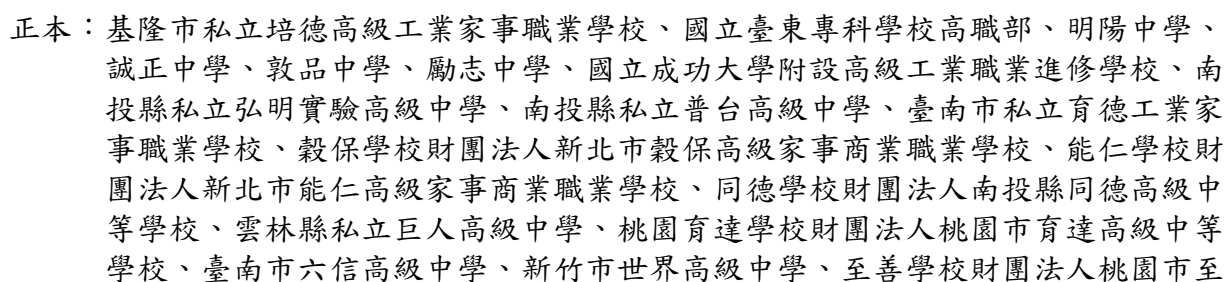 正本：基隆市私立培德高級工業家事職業學校、國立臺東專科學校高職部、明陽中學、
誠正中學、敦品中學、勵志中學、國立成功大學附設高級工業職業進修學校、南
投縣私立弘明實驗高級中學、南投縣私立普台高級中學、臺南市私立育德工業家
事職業學校、穀保學校財團法人新北市穀保高級家事商業職業學校、能仁學校財
團法人新北市能仁高級家事商業職業學校、同德學校財團法人南投縣同德高級中
等學校、雲林縣私立巨人高級中學、桃園育達學校財團法人桃園市育達高級中等
學校、臺南市六信高級中學、新竹市世界高級中學、至善學校財團法人桃園市至